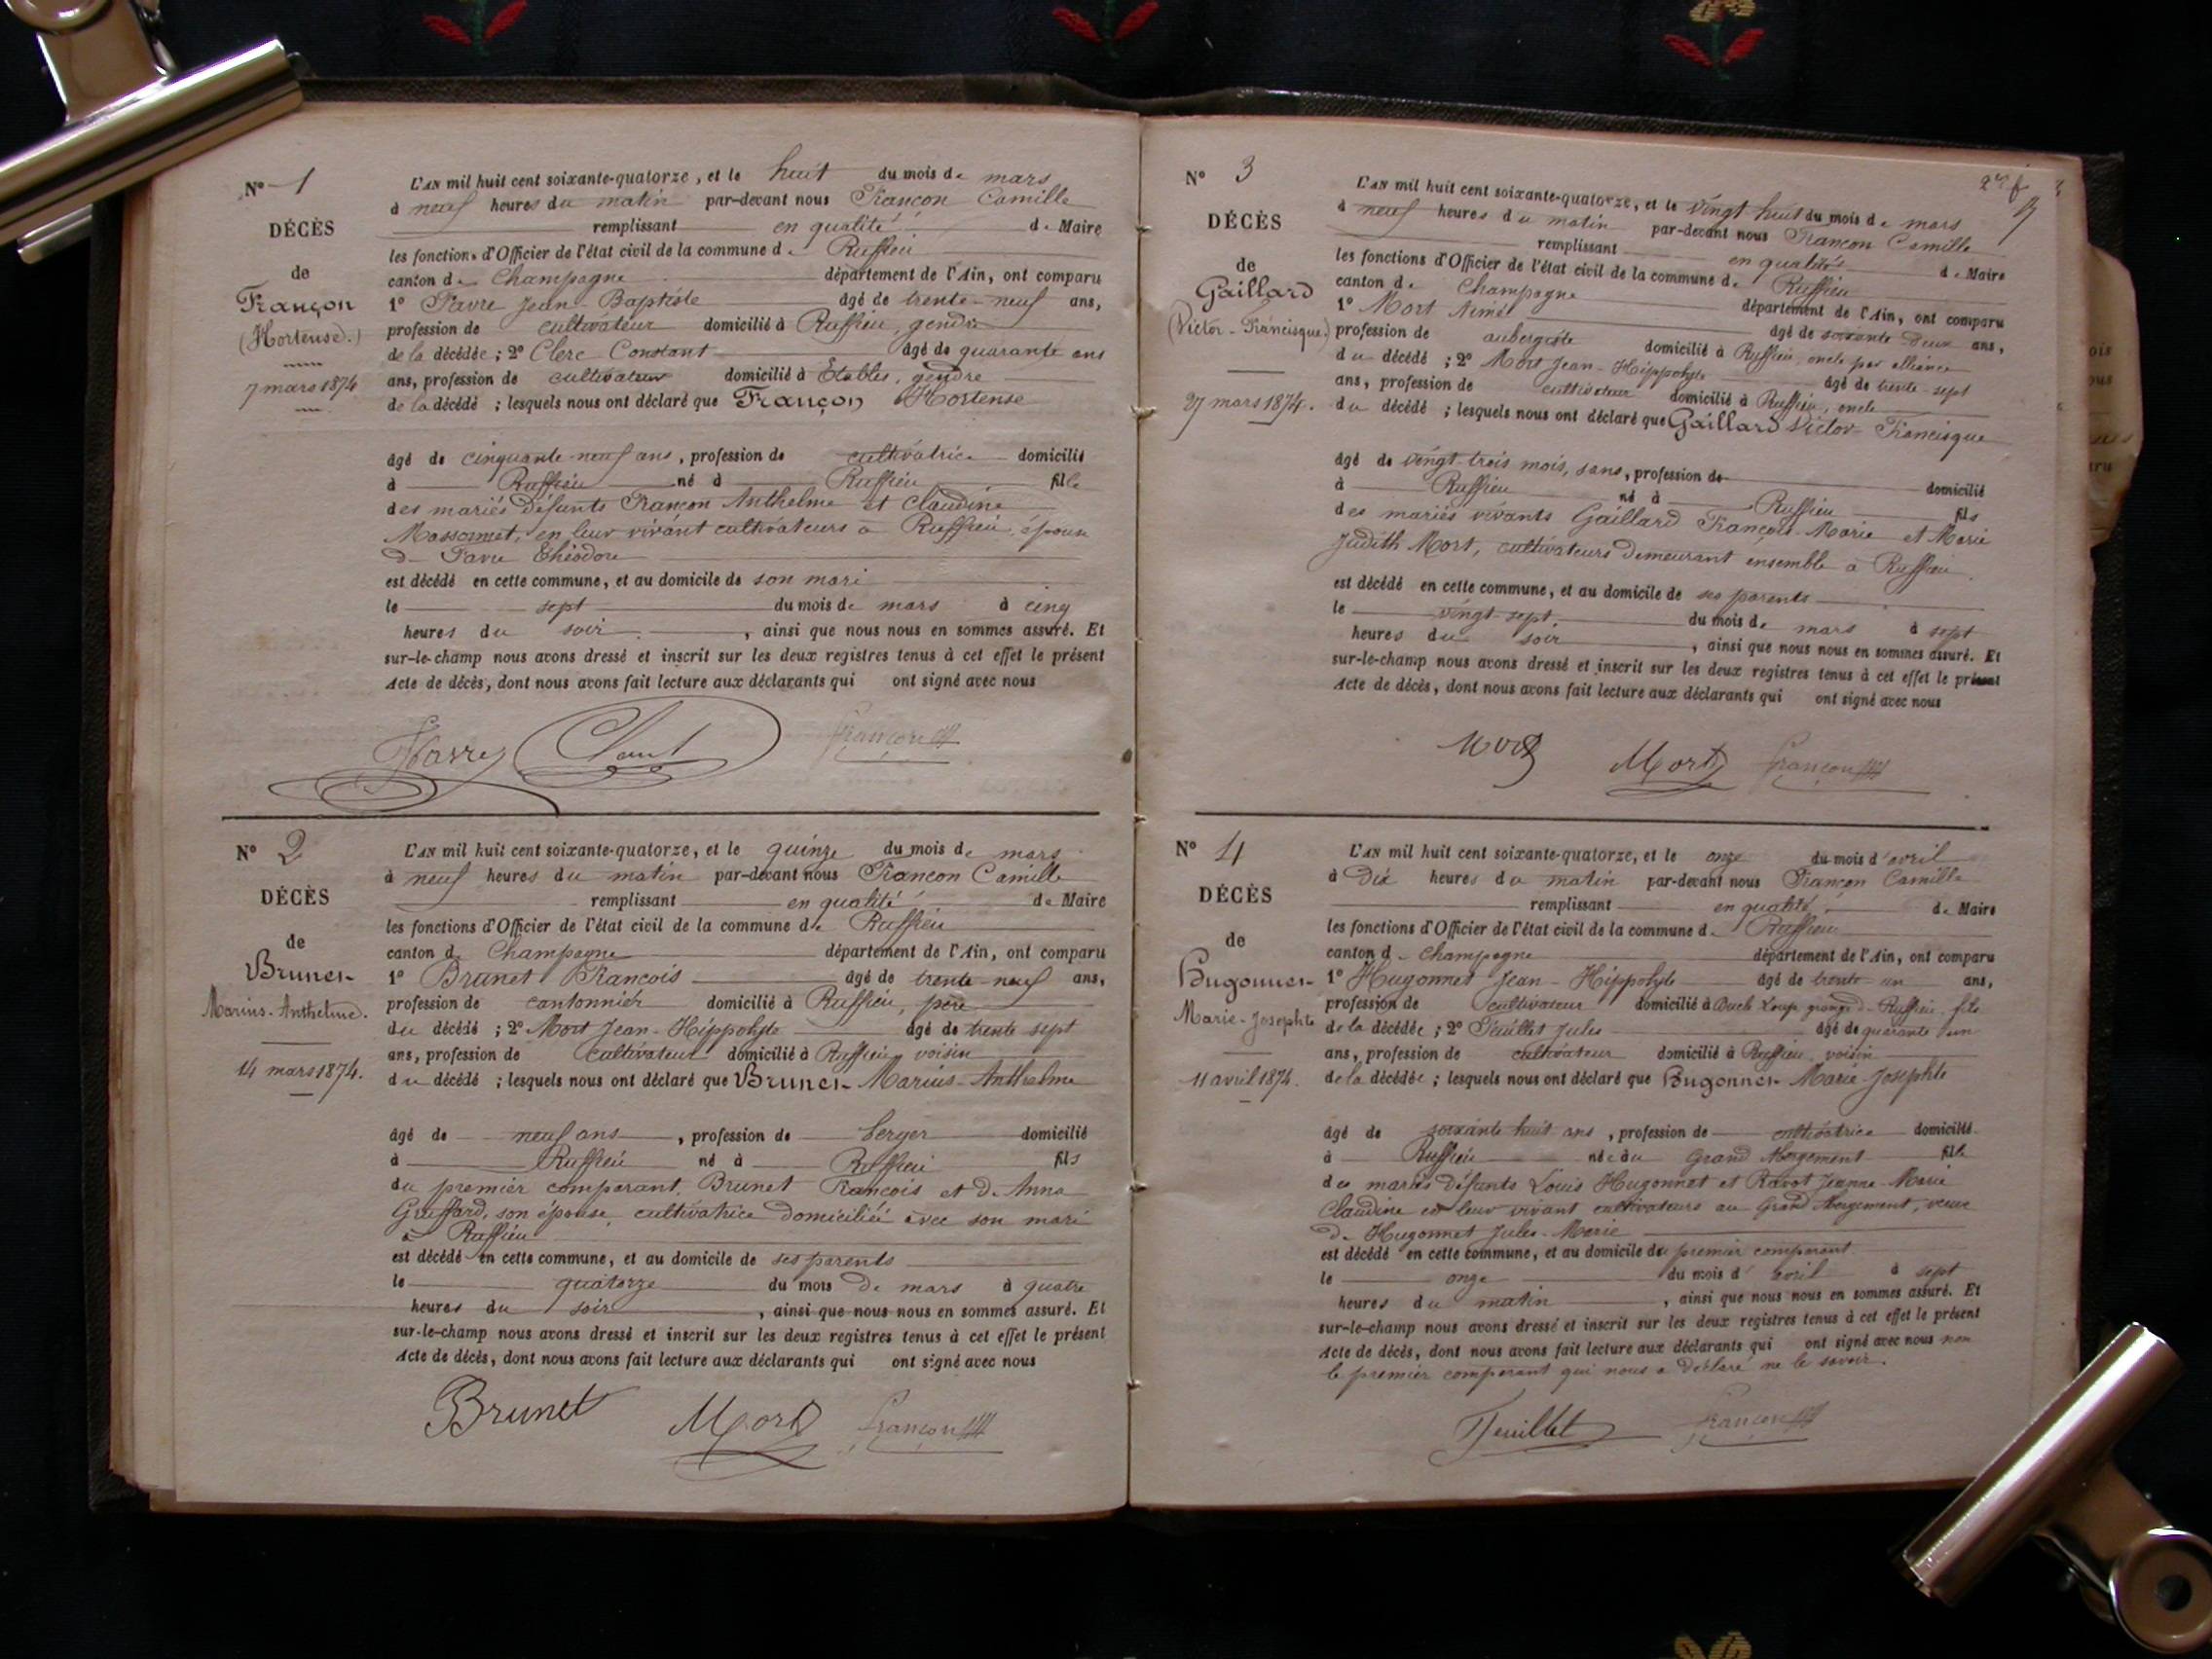 N° 1
DÉCÈS
de
Françon
(Hortense.)
7 mars 1874
L'AN mil huit cent soixante-quatorze, et le huit du mois de mars
à neuf heures du matin par-devant nous Françon Camille
remplissant en qualité de Maire
les fonctions d'Officier de l'état civil de la commune de Ruffieu
canton de Champagne département de l'Ain, ont comparu
1° Favre Jean Baptiste âgé de trente-neuf ans,
profession de cultivateur domicilié à Ruffieu, gendre
de la décédée ; 2° Clerc Constant âgé de quarante ans
ans, profession de cultivateur domicilié à Etables, gendre
de la décédé ; lesquels nous ont déclaré que Françon Hortense
âgé de cinquante-neuf ans, profession de cultivatrice domicilié
à Ruffieu né à Ruffieu fille
des mariés défunts Françon Anthelme et Claudine
Massonnet, en leur vivant cultivateurs à Ruffieu, épouse
de Favre Théodore
est décédé en cette commune, et au domicile de son mari
le sept du mois de mars à cinq
heures du soir, ainsi que nous nous en sommes assuré. Et
sur-le-champ nous avons dressé et inscrit sur les deux registres tenus à cet effet le présent
Acte de décès, dont nous avons fait lecture aux déclarants qui ont signé avec nous
Favre Françon
N° 2
DÉCÈS
de
Brunet
Marius-Anthelme.
14 mars 1874.
L'AN mil huit cent soixante-quatorze, et le quinze du mois de mars
à neuf heures du matin par-devant nous Françon Camille
remplissant en qualité de Maire
les fonctions d'Officier de l'état civil de la commune de Ruffieu
canton de Champagne département de l'Ain, ont comparu
1° Brunet François âgé de trente-neuf ans,
profession de cantonnier domicilié à Ruffieu, père
du décédé ; 2° Mort Jean-Hippolyte âgé de trente sept
ans, profession de cultivateur domicilié à Ruffieu voisin
du décédé ; lesquels nous ont déclaré que Brunet Marius-Anthelme
âgé de neuf ans, profession de berger domicilié
à Ruffieu né à Ruffieu fils
du premier comparant, Brunet François et de Anna
son épouse, cultivatrice domiciliée avec son mari
à Ruffieu
est décédé en cette commune, et au domicile de ses parents
le quatorze du mois de mars à quatre
heures du soir, ainsi que nous nous en sommes assuré. Et
sur-le-champ nous avons dressé et inscrit sur les deux registres tenus à cet effet le présent
Acte de décès, dont nous avons fait lecture aux déclarants qui ont signé avec nous
Brunet Mort Françon
N° 3
DÉCÈS
de
Gaillard
(Victor-Francisque.)
27 mars 1874.
L'AN mil huit cent soixante-quatorze, et le vingt huit du mois de mars
à neuf heures du matin par-devant nous Françon Camille
remplissant en qualité de Maire
les fonctions d'Officier de l'état civil de la commune de Ruffieu
canton de Champagne département de l'Ain, ont comparu
1° Mort Aimé âgé de soixante deux ans,
profession de aubergiste domicilié à Ruffieu, oncle par alliance
du décédé ; 2° Mort Jean-Hippolyte âgé de trente-sept
ans, profession de cultivateur domicilié à Ruffieu, oncle
du décédé ; lesquels nous ont déclaré que Gaillard Victor-Francisque
âgé de vingt-trois mois, sans, profession de domicilié
à Ruffieu né à Ruffieu fils
des mariés vivants Gaillard François-Marie et Marie
Judith Mort, cultivateurs demeurant ensemble à Ruffieu
est décédé en cette commune, et au domicile de ses parents
le vingt-sept du mois de mars à sept
heures du soir, ainsi que nous nous en sommes assuré. Et
sur-le-champ nous avons dressé et inscrit sur les deux registres tenus à cet effet le présent
Acte de décès, dont nous avons fait lecture aux déclarants qui ont signé avec nous
Mort Mort Françon
N° 4
DÉCÈS
de
Hugonnet
Marie-Josephte
11 avril 1874.
L'AN mil huit cent soixante-quatorze, et le onze du mois d'avril
à dix heures du matin par-devant nous Françon Camille
remplissant en qualité de Maire
les fonctions d'Officier de l'état civil de la commune de Ruffieu
canton de Champagne département de l'Ain, ont comparu
1° Hugonnet Jean-Hippolyte âgé de trente-un ans,
profession de cultivateur domicilié à Loup, grange de Ruffieu, fils
de la décédée ; 2° Feuillet Jules âgé de quarante un
ans, profession de cultivateur domicilié à Ruffieu, voisin
de la décédée ; lesquels nous ont déclaré que Hugonnet Marie-Josephte
âgé de soixante huit ans, profession de cultivatrice domicilié
à Ruffieu née au Grand Abergement fille
des mariés défunts Louis Hugonnet et Ravot Jeanne-Marie
Claudine en leur vivant cultivateurs au Grand Abergement, veuve
de Hugonnet Jules-Marie
est décédé en cette commune, et au domicile du premier comparant
le onze du mois d'avril à sept
heures du matin, ainsi que nous nous en sommes assuré. Et
sur-le-champ nous avons dressé et inscrit sur les deux registres tenus à cet effet le présent
Acte de décès, dont nous avons fait lecture aux déclarants qui ont signé avec nous non
le premier comparant qui nous a déclaré ne le savoir.
Feuillet Françon